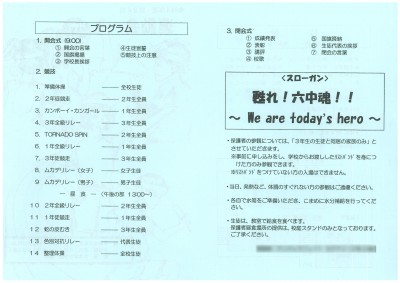 プログラム
1. 開会式 (9:00)
① 開会の言葉 ④生徒宣誓
② 国旗掲揚 ⑤競技上の注意
③ 学校長挨拶
2. 競技
1. 準備体操 ――― 全校生徒
2. 2年徒競走 ――― 2年生全員
3. カンボーイ・カンガール ――― 1年生全員
4. 3年全級リレー ――― 3年生全員
5. TORNADO SPIN ――― 2年生全員
6. 1年全級リレー ――― 1年生全員
7. 3年徒競走 ――― 3年生全員
8. ムカデリレー(女子) ――― 女子生徒
9. ムカデリレー(男子) ――― 男子生徒
― 昼 食 ― (午後の部 13:00~)
10 2年全級リレー ――― 2年生全員
11 1年徒競走 ――― 1年生全員
12 蛇の皮むき ――― 3年生全員
13 色別対抗リレー ――― 代表生徒
14 整理体操 ――― 全校生徒
3. 閉会式
① 成績発表 ⑤ 国旗降納
② 表彰 ⑥ 生徒代表の挨拶
③ 講評 ⑦ 閉会の言葉
④ 校歌
<スローガン>
甦れ!六中魂!!
~ We are today's hero ~
・保護者の参観については、「3年生の生徒と同居の家族のみ」とさせていただきます。
※事前に申し込みをし、学校からお渡ししたリストバンドを身につけた方のみ参観できます。
※リストバンドをつけていない方の入場はできません。
・当日、発熱など、体調のすぐれない方の参観はご遠慮ください。
・各自で水筒をご準備いただき、こまめに水分補給を行ってください。
・生徒は、教室で給食を食べます。
保護者昼食場所の提供は、校庭スタンドのみとなっております。ご了承ください。